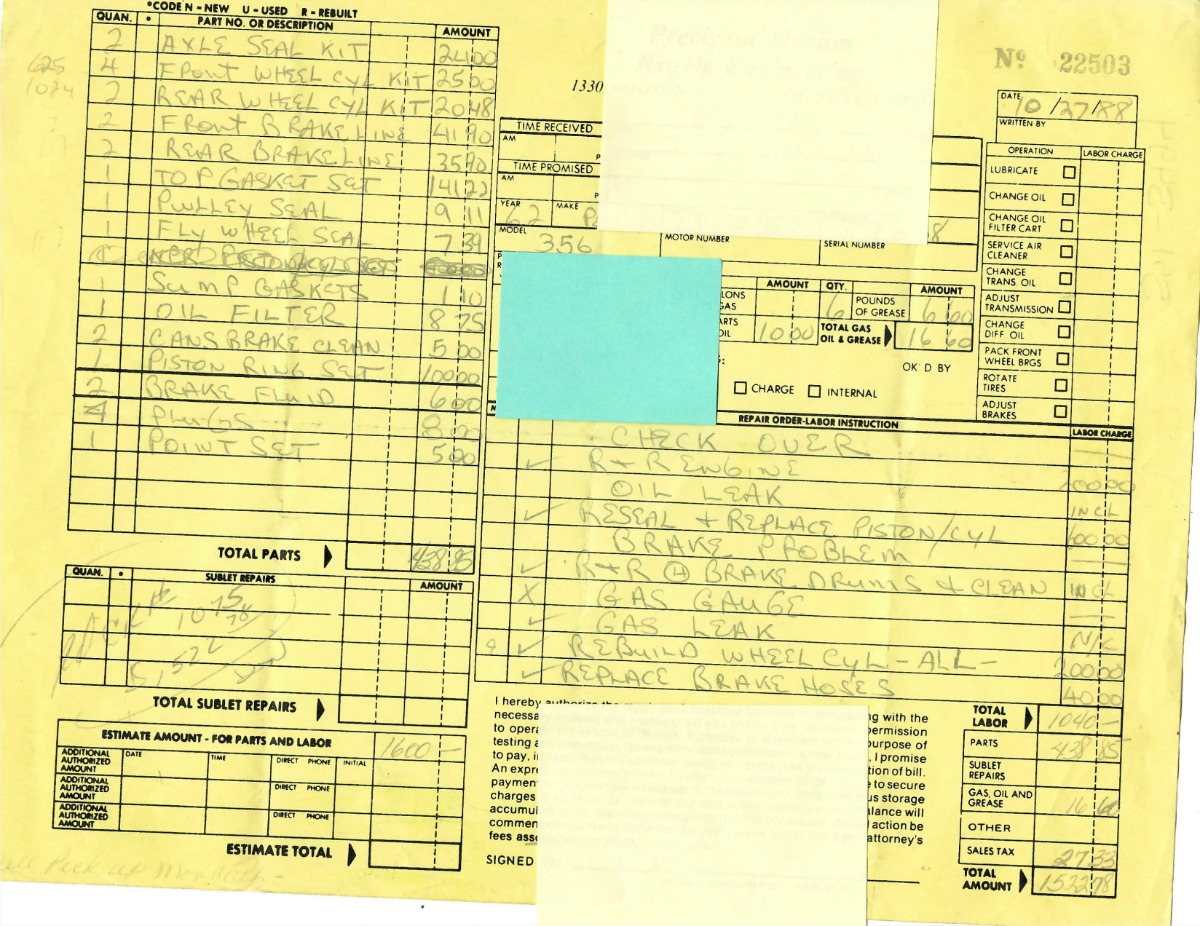 *CODE N - NEW U - USED R - REBUILT
QUAN. * PART NO. OR DESCRIPTION AMOUNT
2 AXLE SEAL KIT 24 00
4 FRONT WHEEL CYL KIT 25 00
2 REAR WHEEL CYL KIT 20 48
2 FRONT BRAKE LINE 41 90
2 REAR BRAKE LINE 35 90
1 TOP GASKET SET 141 22
1 PULLEY SEAL 9 11
1 FLY WHEEL SEAL 7 39
1 SUMP GASKETS 1 10
1 OIL FILTER 8 75
2 CANS BRAKE CLEAN 5 00
1 PISTON RING SET 100 00
2 BRAKE FLUID 6 00
4 PLUGS 8 00
1 POINT SET 5 00
TOTAL PARTS 438 85
625
1074
QUAN. * SUBLET REPAIRS AMOUNT
TOTAL SUBLET REPAIRS
ESTIMATE AMOUNT - FOR PARTS AND LABOR 1600 -
ADDITIONAL AUTHORIZED AMOUNT DATE TIME DIRECT PHONE INITIAL
ADDITIONAL AUTHORIZED AMOUNT DIRECT PHONE
ADDITIONAL AUTHORIZED AMOUNT DIRECT PHONE
ESTIMATE TOTAL
Pick up Monday -
1330
Nº 22503
DATE 10/27/88
WRITTEN BY
TIME RECEIVED
AM
TIME PROMISED
AM
YEAR 62 MAKE
MODEL 356 MOTOR NUMBER SERIAL NUMBER 8
AMOUNT QTY. AMOUNT
6 POUNDS OF GREASE 6 60
10 00 TOTAL GAS OIL & GREASE 16 60
OK'D BY
CHARGE INTERNAL
OPERATION LABOR CHARGE
LUBRICATE
CHANGE OIL
CHANGE OIL FILTER CART
SERVICE AIR CLEANER
CHANGE TRANS. OIL
ADJUST TRANSMISSION
CHANGE DIFF OIL
PACK FRONT WHEEL BRGS
ROTATE TIRES
ADJUST BRAKES
REPAIR ORDER-LABOR INSTRUCTION LABOR CHARGE
CHECK OVER
✓ R+R ENGINE 200 00
OIL LEAK INCL
✓ RESEAL + REPLACE PISTON/CYL 600 00
BRAKE PROBLEM
✓ R+R (4) BRAKE DRUMS & CLEAN INCL
X GAS GAUGE
✓ GAS LEAK N/C
✓ REBUILD WHEEL CYL - ALL - 200 00
✓ REPLACE BRAKE HOSES 40 00
I hereby authorize the
necessa ng with the
to opera ermission
testing a urpose of
to pay, i , I promise
An expre tion of bill.
paymen e to secure
charges us storage
accumul alance will
commen action be
fees ass attorney's
SIGNED
TOTAL LABOR 1040 -
PARTS 438 85
SUBLET REPAIRS
GAS, OIL AND GREASE 16 60
OTHER
SALES TAX 27 33
TOTAL AMOUNT 1522 78